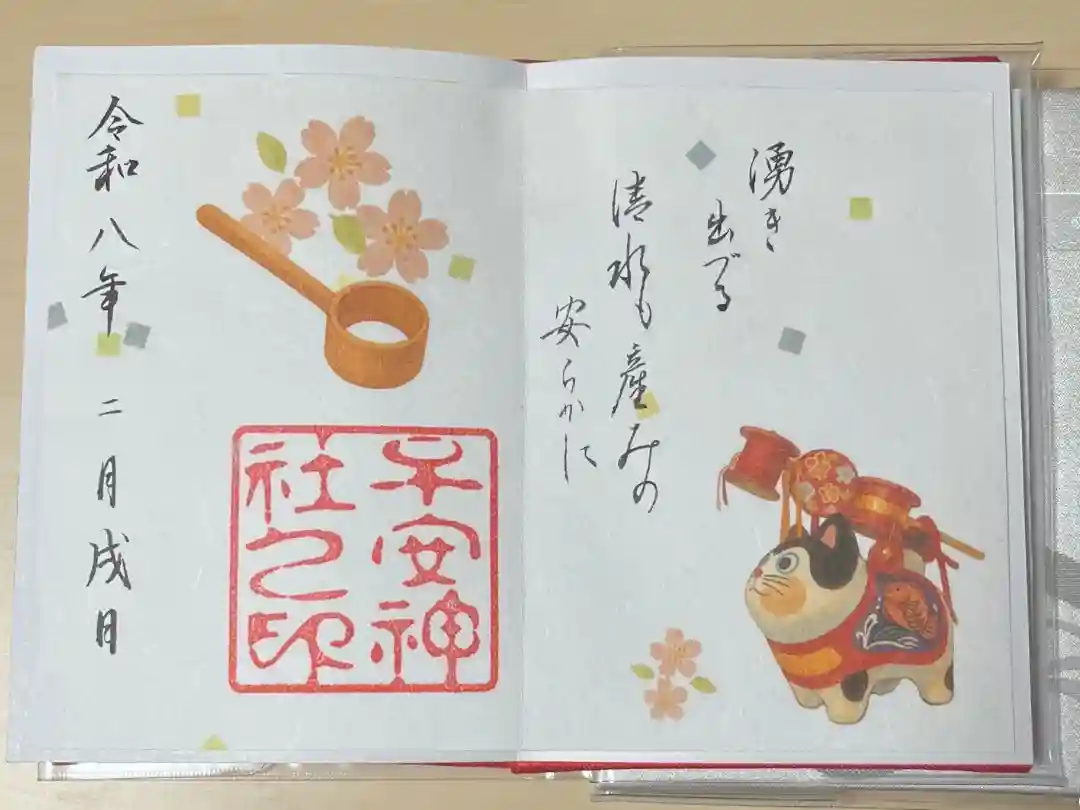 湧き
出づる
清水も産みの
安らかに
子安神
社之印
令和八年二月戌日